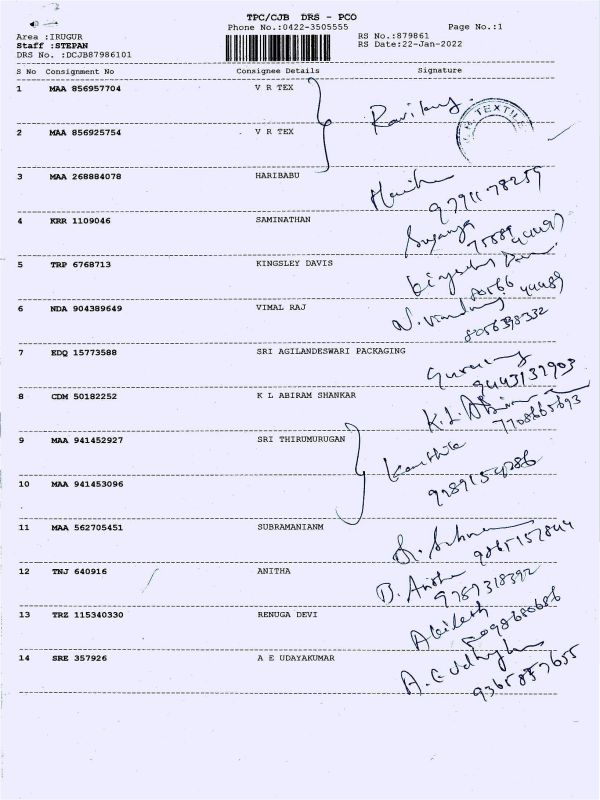 TPC/CJB DRS - PCO
Phone No.:0422-3505555 Page No.:1
Area :IRUGUR RS No.:879861
Staff :STEPAN RS Date:22-Jan-2022
DRS No. :DCJB87986101
S No Consignment No Consignee Details Signature
1 MAA 856957704 V R TEX
TEXTIL
2 MAA 856925754 V R TEX
3 MAA 268884078 HARIBABU
4 KRR 1109046 SAMINATHAN
5 TRP 6768713 KINGSLEY DAVIS
6 NDA 904389649 VIMAL RAJ
8056398332
7 EDQ 15773588 SRI AGILANDESWARI PACKAGING
9443131903
8 CDM 50182252 K L ABIRAM SHANKAR K.L.Abiram
7708665693
9 MAA 941452927 SRI THIRUMURUGAN
10 MAA 941453096
11 MAA 562705451 SUBRAMANIANM
12 TNJ 640916 ANITHA B. Anitha
9789318392
13 TRZ 115340330 RENUGA DEVI Akilesh
14 SRE 357926 A E UDAYAKUMAR
9365857655